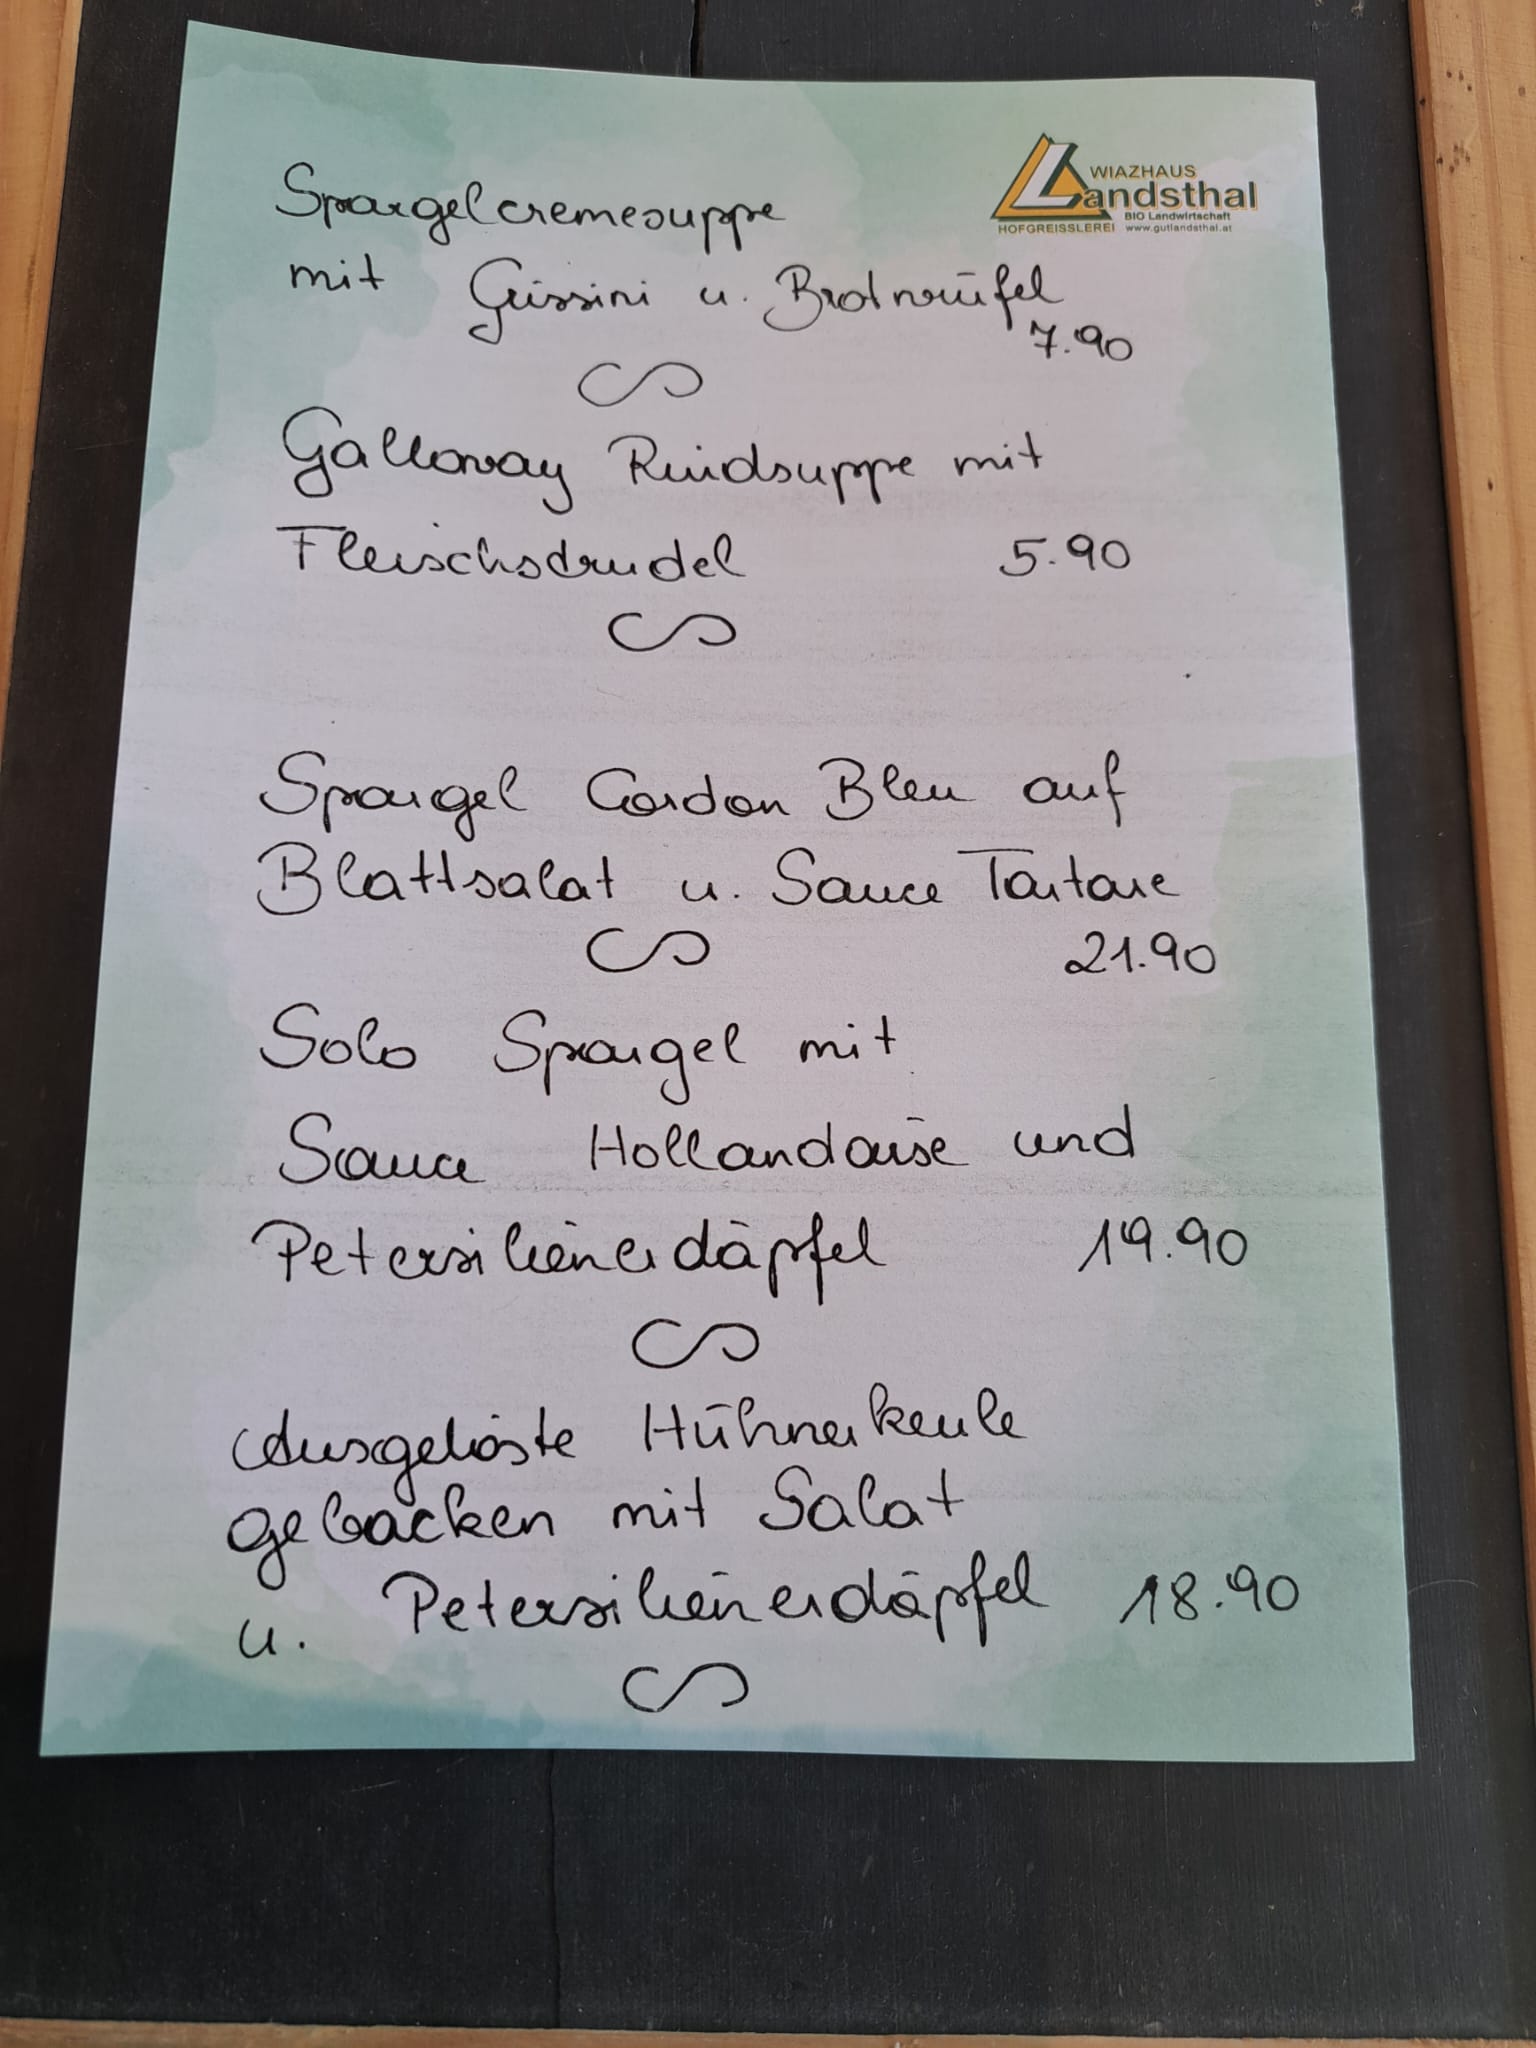 WIAZHAUS
Landsthal
BIO Landwirtschaft
HOFGREISSLEREI www.gutlandsthal.at
Spargelcremesuppe
mit Grissini u. Brotwürfel
7.90
Galloway Rindsuppe mit
Fleischstrudel 5.90
Spargel Cordon Bleu auf
Blattsalat u. Sauce Tartare
21.90
Solo Spargel mit
Sauce Hollandaise und
Petersilienerdäpfel 19.90
Ausgelöste Hühnerkeule
gebacken mit Salat
u. Petersilienerdäpfel 18.90